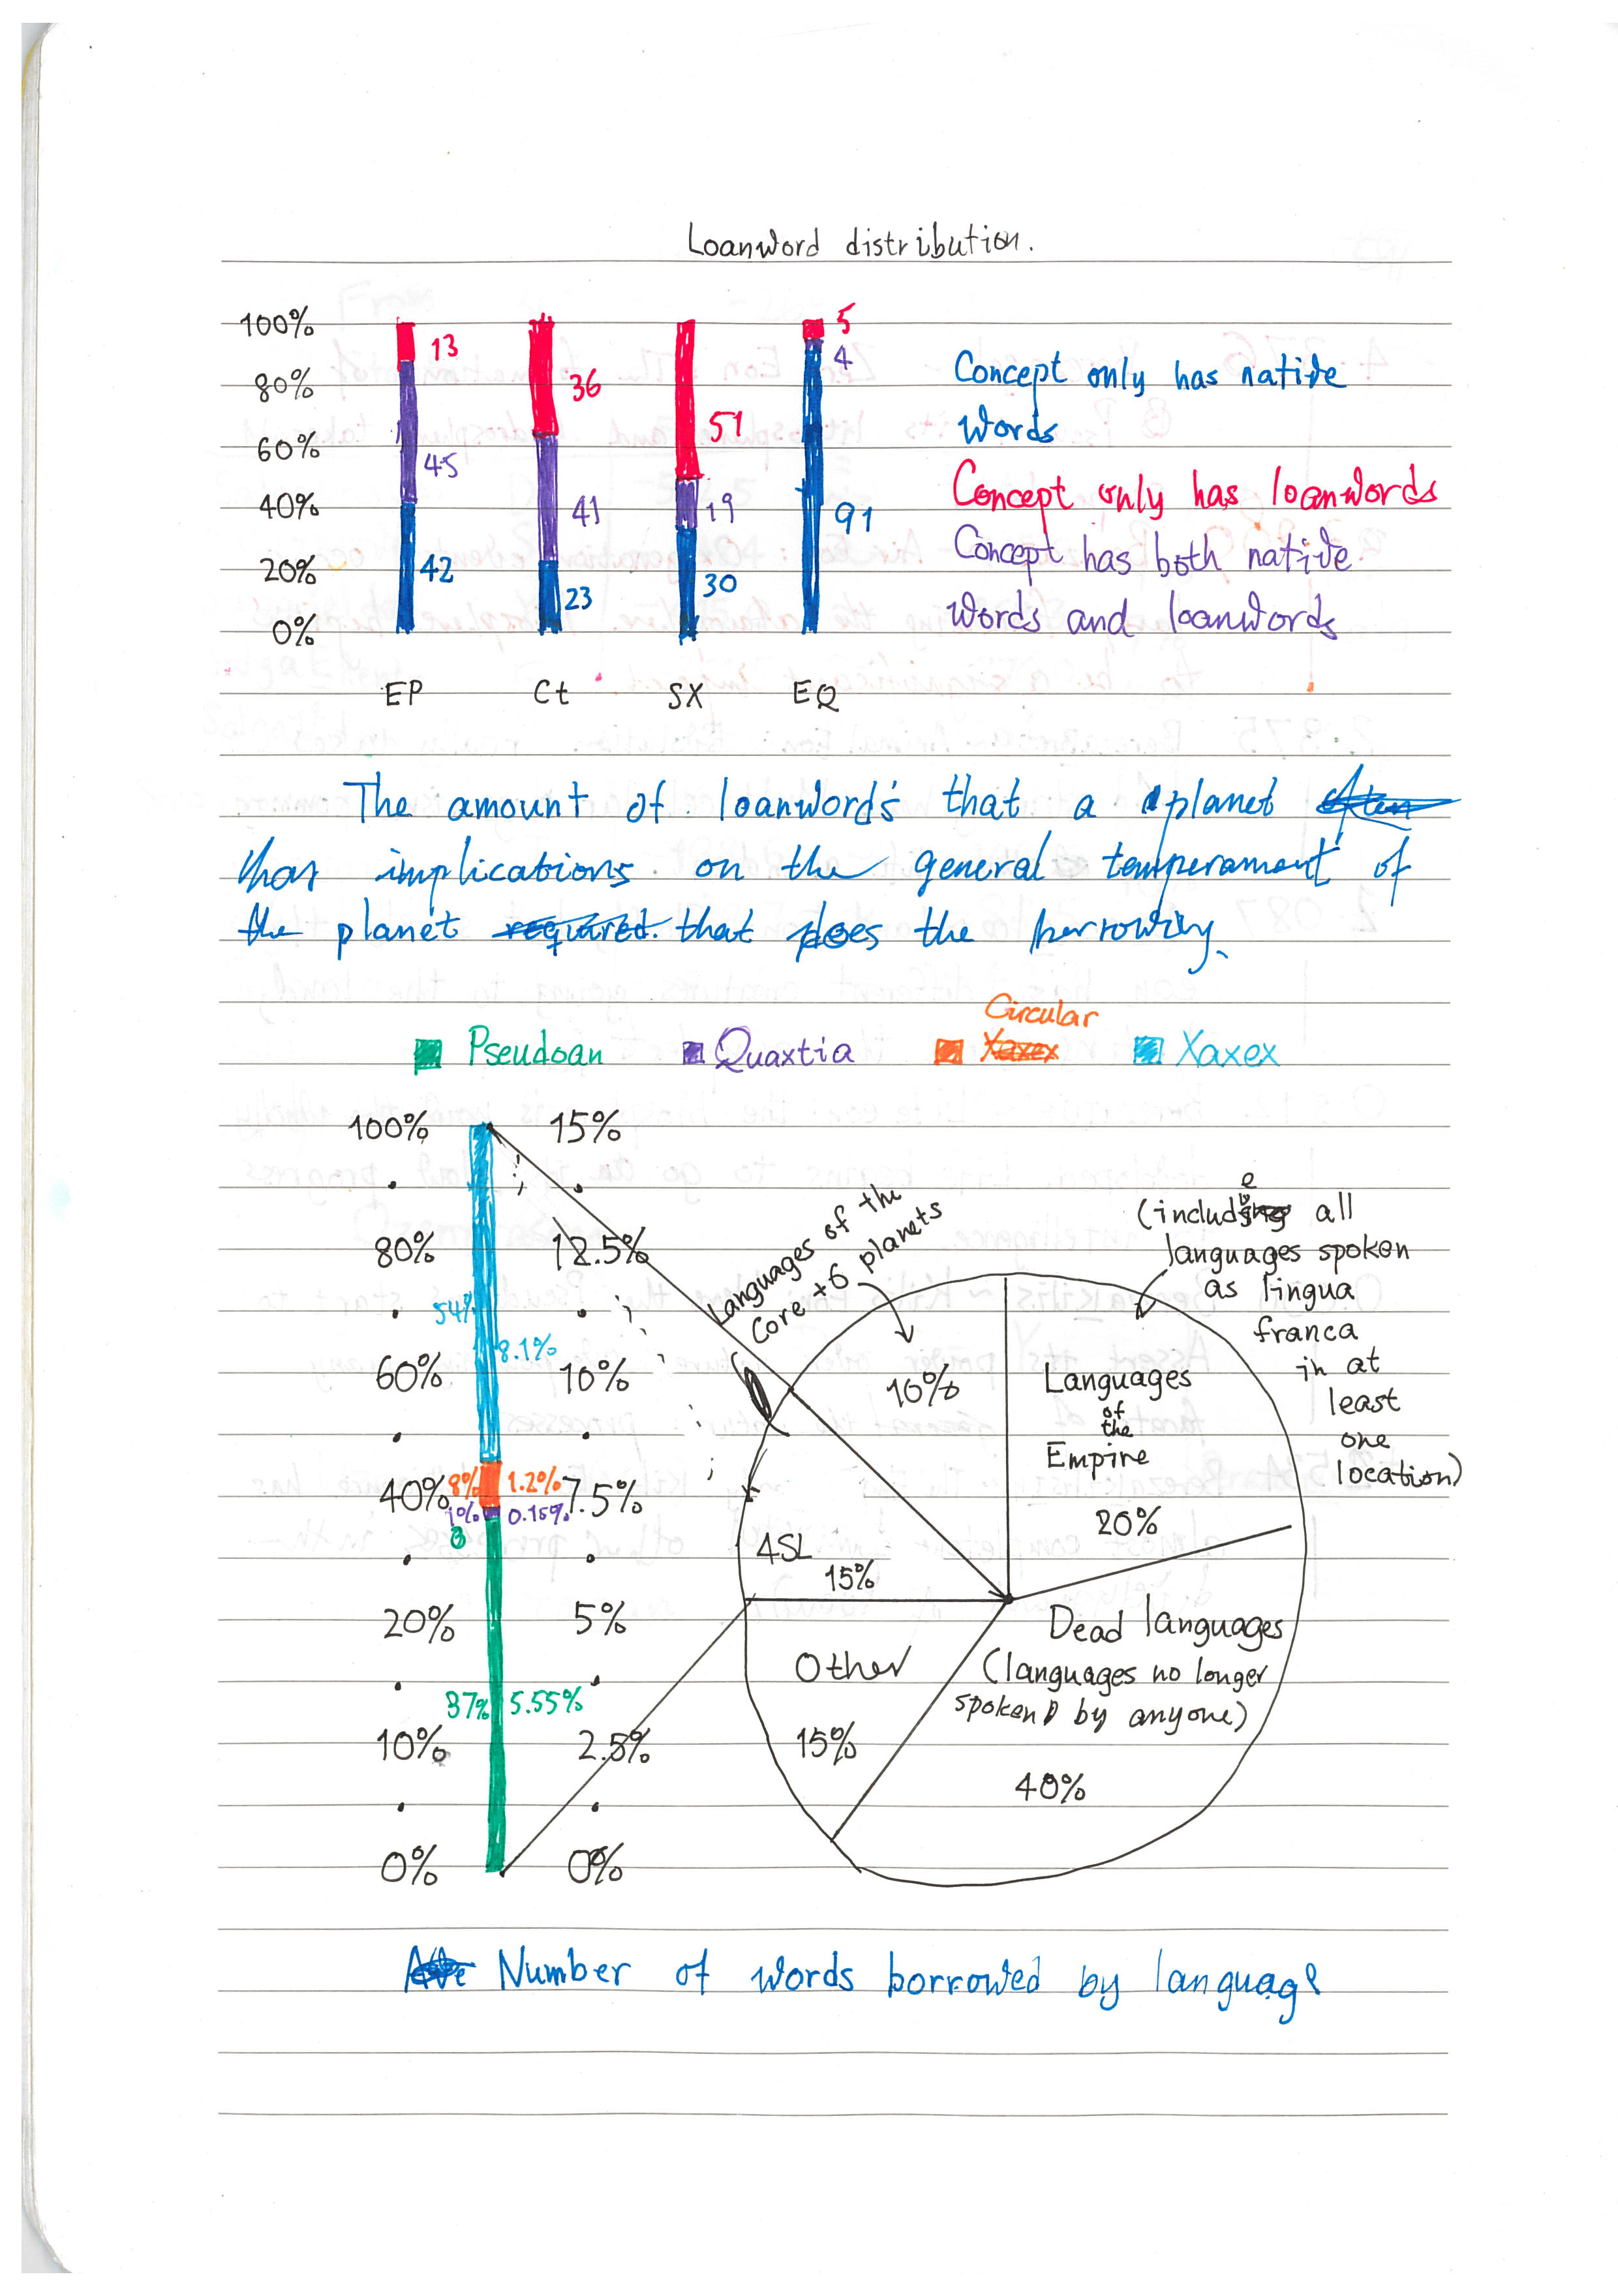 Loanword distribution.
100%
80%
60%
40%
20%
0%
13
45
42
36
41
23
51
19
30
5
4
91
EP Ct SX EQ
Concept only has native
words
Concept only has loanwords
Concept has both native
words and loanwords
The amount of loanwords that a planet
has implications on the general temperament of
the planet required that does the borrowing.
Pseudoan Quaxtia Circular Xaxex Xaxex
100% 15%
80% 12.5%
60% 10%
40% 7.5%
20% 5%
10% 2.5%
0% 0%
54% 8.1%
8% 1.2%
1% 0.15%
37% 5.55%
Languages of the
Core +6 planets
10%
(include all
languages spoken
as lingua
franca
in at
least
one
location)
Languages
of
the
Empire
20%
4SL
15%
Other
15%
Dead languages
(languages no longer
spoken by anyone)
40%
Number of words borrowed by language